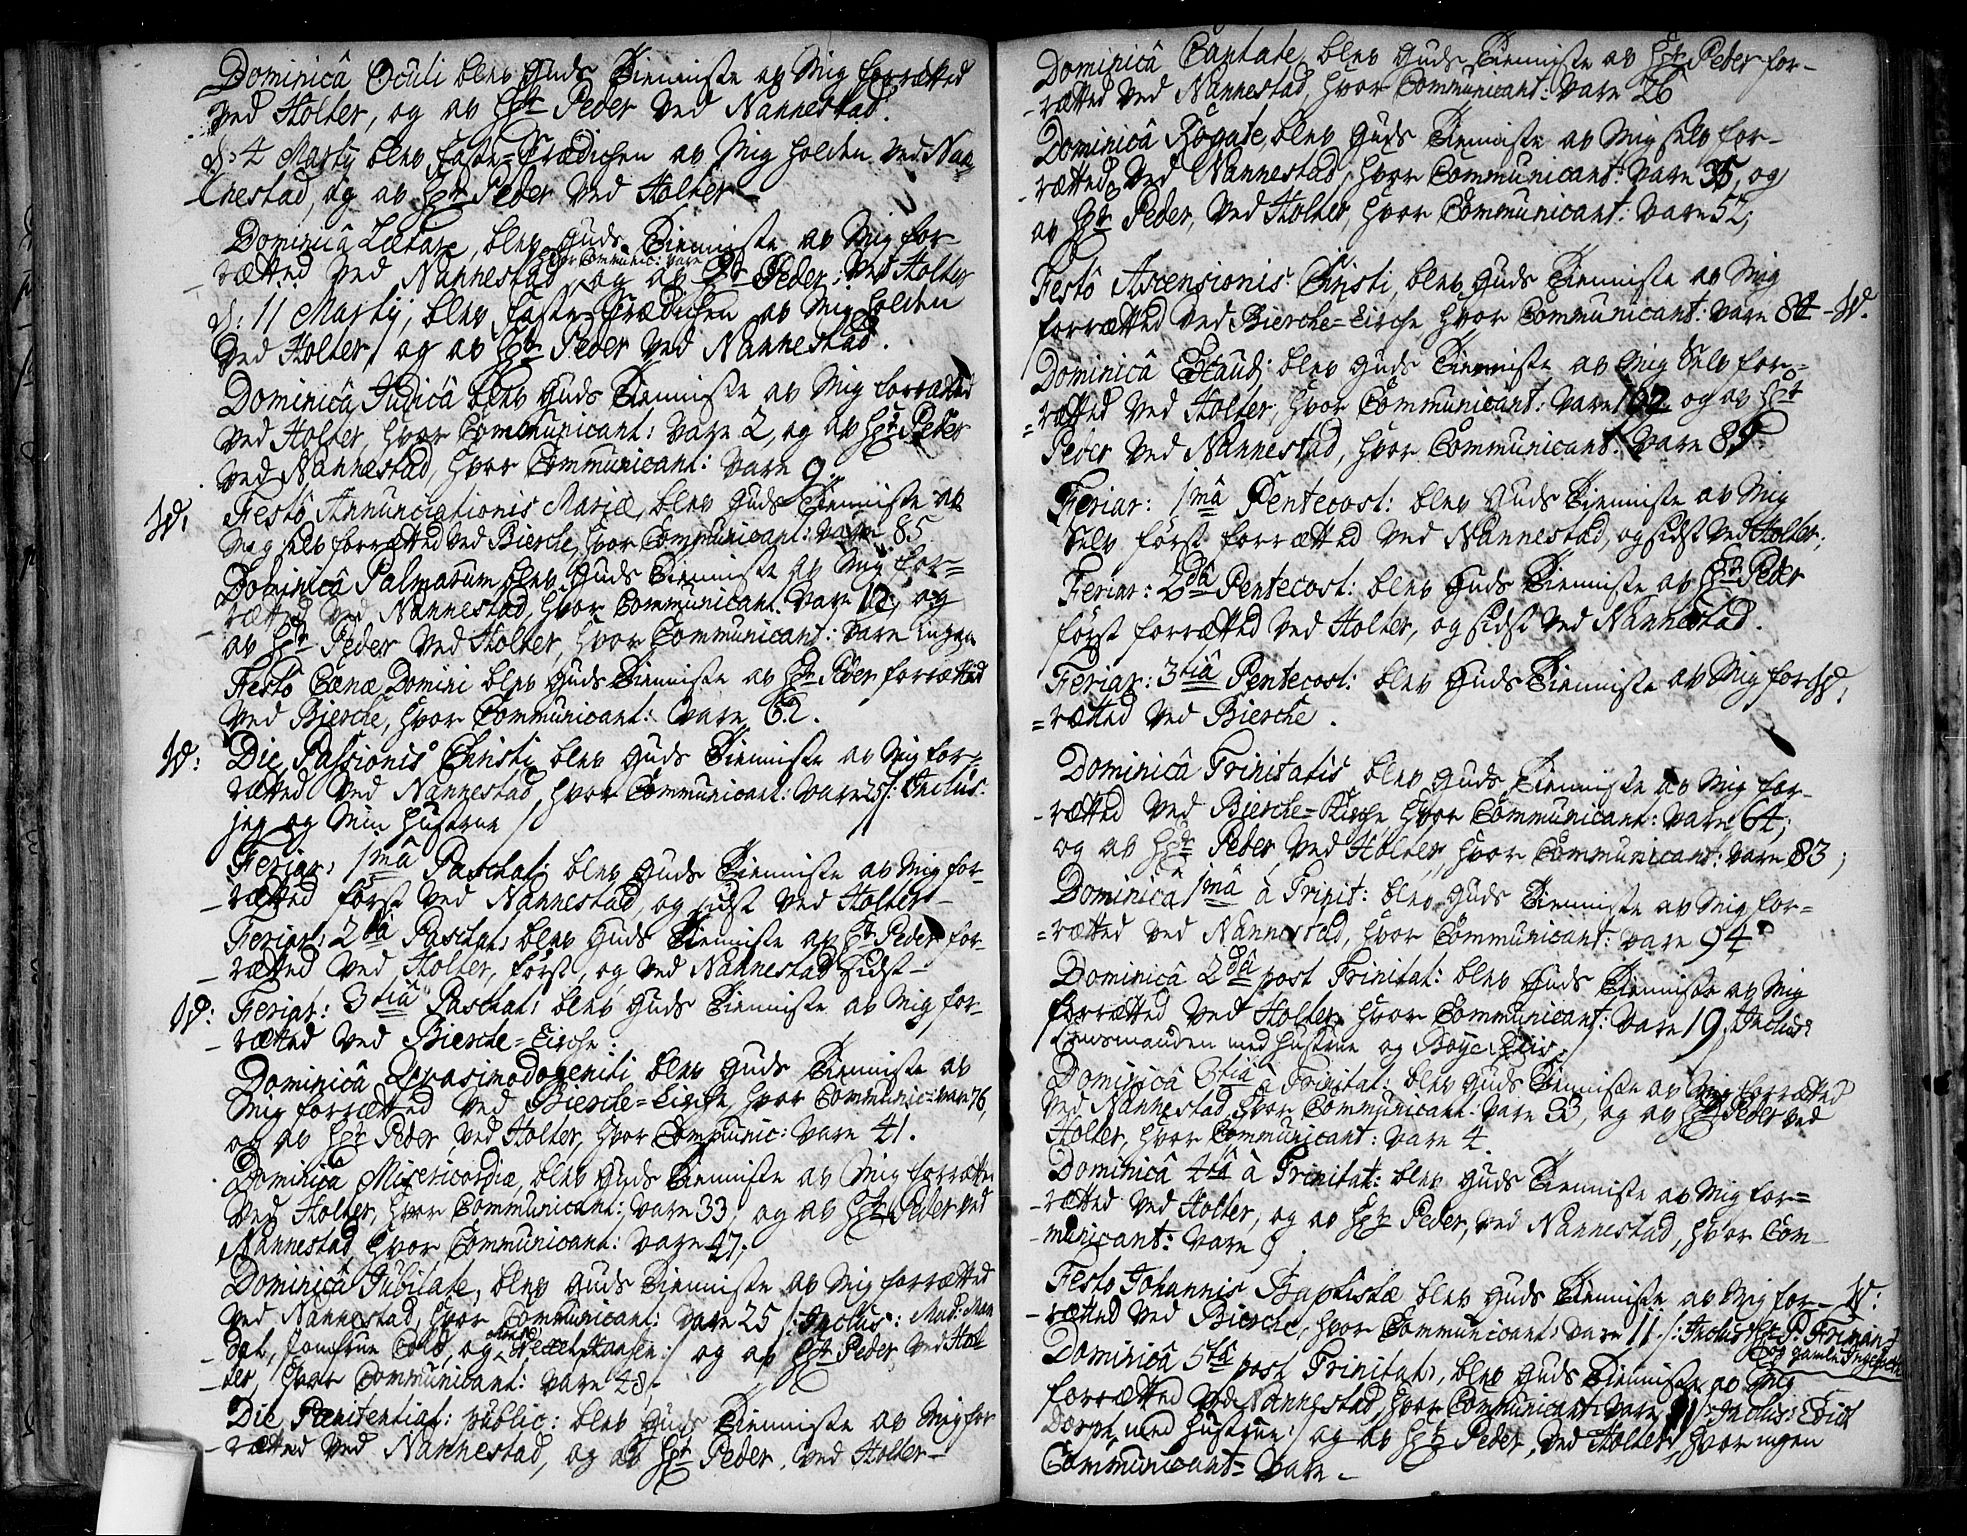 Dominicâ Oculi blev Guds Tienniste av Mig forrætted
ved Holter, og av Hr Peder ved Nannestad.
d: 4 Martij blev faste-Prædichen av Mig holden ved Nan
nestad, og av Hr Peder ved Holter
Dominicâ Lætare, blev Guds Tienniste av Mig for-
hvor Communic: vare
-rætted ved Nannestad og av Hr Peder ved Holter
d: 11 Martij, blev faste-Prædichen av Mig holden
ved Holter, og av Hr Peder ved Nannestad.
Dominicâ Judicâ blev Guds Tienniste av Mig forrætted
ved Holter, hvor Communicant: vare 2, og av Hr Peder
ved Nannestad, hvor Communicant: vare 9
Festô Annunciationis Mariæ, blev Guds Tienniste av
Mig selv forrætted ved Bierche, hvor Communicant: vare 85
Dominicâ Palmarum blev Guds Tienniste av Mig for=
-rætted ved Nannestad, hvor Communicant. vare 12, og
av Hr Peder ved Holter, hvor Communicant: vare ingen
Festô Cœnæ Domini blev Guds Tienniste av Hr Peder forrætted
ved Bierche, hvor Communicant: vare 62.
Die Passionis Christi blev Guds Tienniste av Mig for=
rætted ved Nannestad, hvor Communicant: vare 25 /: Inclus:
jeg og Min Hustrue /
Feriar: 1mâ Paschat: blev Guds Tienniste av Mig for-
-rætted først ved Nannestad, og sidst ved Holter-
Feriar: 2dâ Paschat: blev Guds Tienniste av Hr Peder for-
-rætted ved Holter, først, og ved Nannestad sidst-
Feriar: 3tiâ Paschat: blev Guds Tienniste av Mig for-
-rætted ved Bierche=Kirche.
Dominicâ Qvasimodogeniti blev Guds Tienniste av
Mig forrætted ved Bierche=Kirche, hvor Communic: vare 76,
og av Hr Peder ved Holter, hvor Communic: vare 41.
Dominicâ Misericordiæ, blev Guds Tienniste av Mig forrætted
ved Holter, hvor Communicant: vare 33, og av Hr Peder ved
Nannestad hvor Communicant: vare 47.
Dominicâ Jubilate, blev Guds Tienniste av Mig forrætted
ved Nannestad, hvor Communicant: vare 25 /: Inclus: Mad: Man
-dal, Jomfrue Cold, og Hansen :/ og av Hr Peder ved Hol
-ter, hvor Communicant: vare 48.
Die Pœnitentiat: public: blev Guds Tienniste av Mig for
-rætted ved Nannestad, og av Hr Peder, ved Holter-
Dominicâ Cantate, blev Guds Tienniste av Hr Peder for-
-rætted ved Nannestad, hvor Communicant: vare 26
Dominicâ Rogate, blev Guds Tienniste av Mig selv for-
-rætted ved Nannestad, hvor Communicant: vare 35, og
av Hr Peder, ved Holter, hvor Communicant: vare 52,
Festô Ascensionis Christi, blev Guds Tienniste av Mig
forrætted ved Bierche=Kirche hvor Communicant: vare 84
Dominicâ Exaud: blev Guds Tienniste av Mig selv for-
=rætted ved Holter, hvor Communicant: vare 62 og av Hr
Peder ved Nannestad, hvor Communicant: vare 89
Feriar: 1mâ Pentecost: blev Guds Tienniste av Mig
selv først forrætted ved Nannestad, og sidst ved Holter,
Feriar: 2dâ Pentecost: blev Guds Tienniste av Hr Peder
først forrætted ved Holter, og sidst ved Nannestad.
Feriar: 3tiâ Pentecost: blev Guds Tienniste av Mig for
=rætted ved Bierche.
Dominicâ Trinitatis blev Guds Tienniste av Mig for-
-rætted ved Bierche=Kirche hvor Communicant: vare 64;
og av Hr Peder ved Holter, hvor Communicant: vare 83;
Dominicâ 1mâ â Trinit: blev Guds Tienniste av Mig for=
=rætted ved Nannestad, hvor Communicant: vare 94
Dominicâ 2dâ post Trinitat: blev Guds Tienniste av Mig
forrætted ved Holter, hvor Communicant: vare 19. Inclus:
Lensmanden med Hustrue og
Dominicâ 3tiâ â Trinitat: blev Guds Tienniste av Mig forrætted
ved Nannestad, hvor Communicant: vare 33, og av Hr Peder ved
Holter, hvor Communicant: vare 4
Dominicâ 4tâ â Trinitat: blev Guds Tienniste av Mig for=
-rætted ved Holter, og av Hr Peder, ved Nannestad, hvor Com
municant: vare 9
Festo Johannis Baptistæ blev Guds Tienniste av Mig for-
-rætted ved Bierche, hvor Communicant: vare 11 /: Inclus: Hr P:
og gamle
Dominicâ 5tâ post Trinitat:, blev Guds Tienniste av Mig
forrætted ved Nannestad, hvor Communicant: vare Inclus:
med Hustrue :/ og av Hr Peder, ved Holter, hvor ingen
Communicant= vare.-